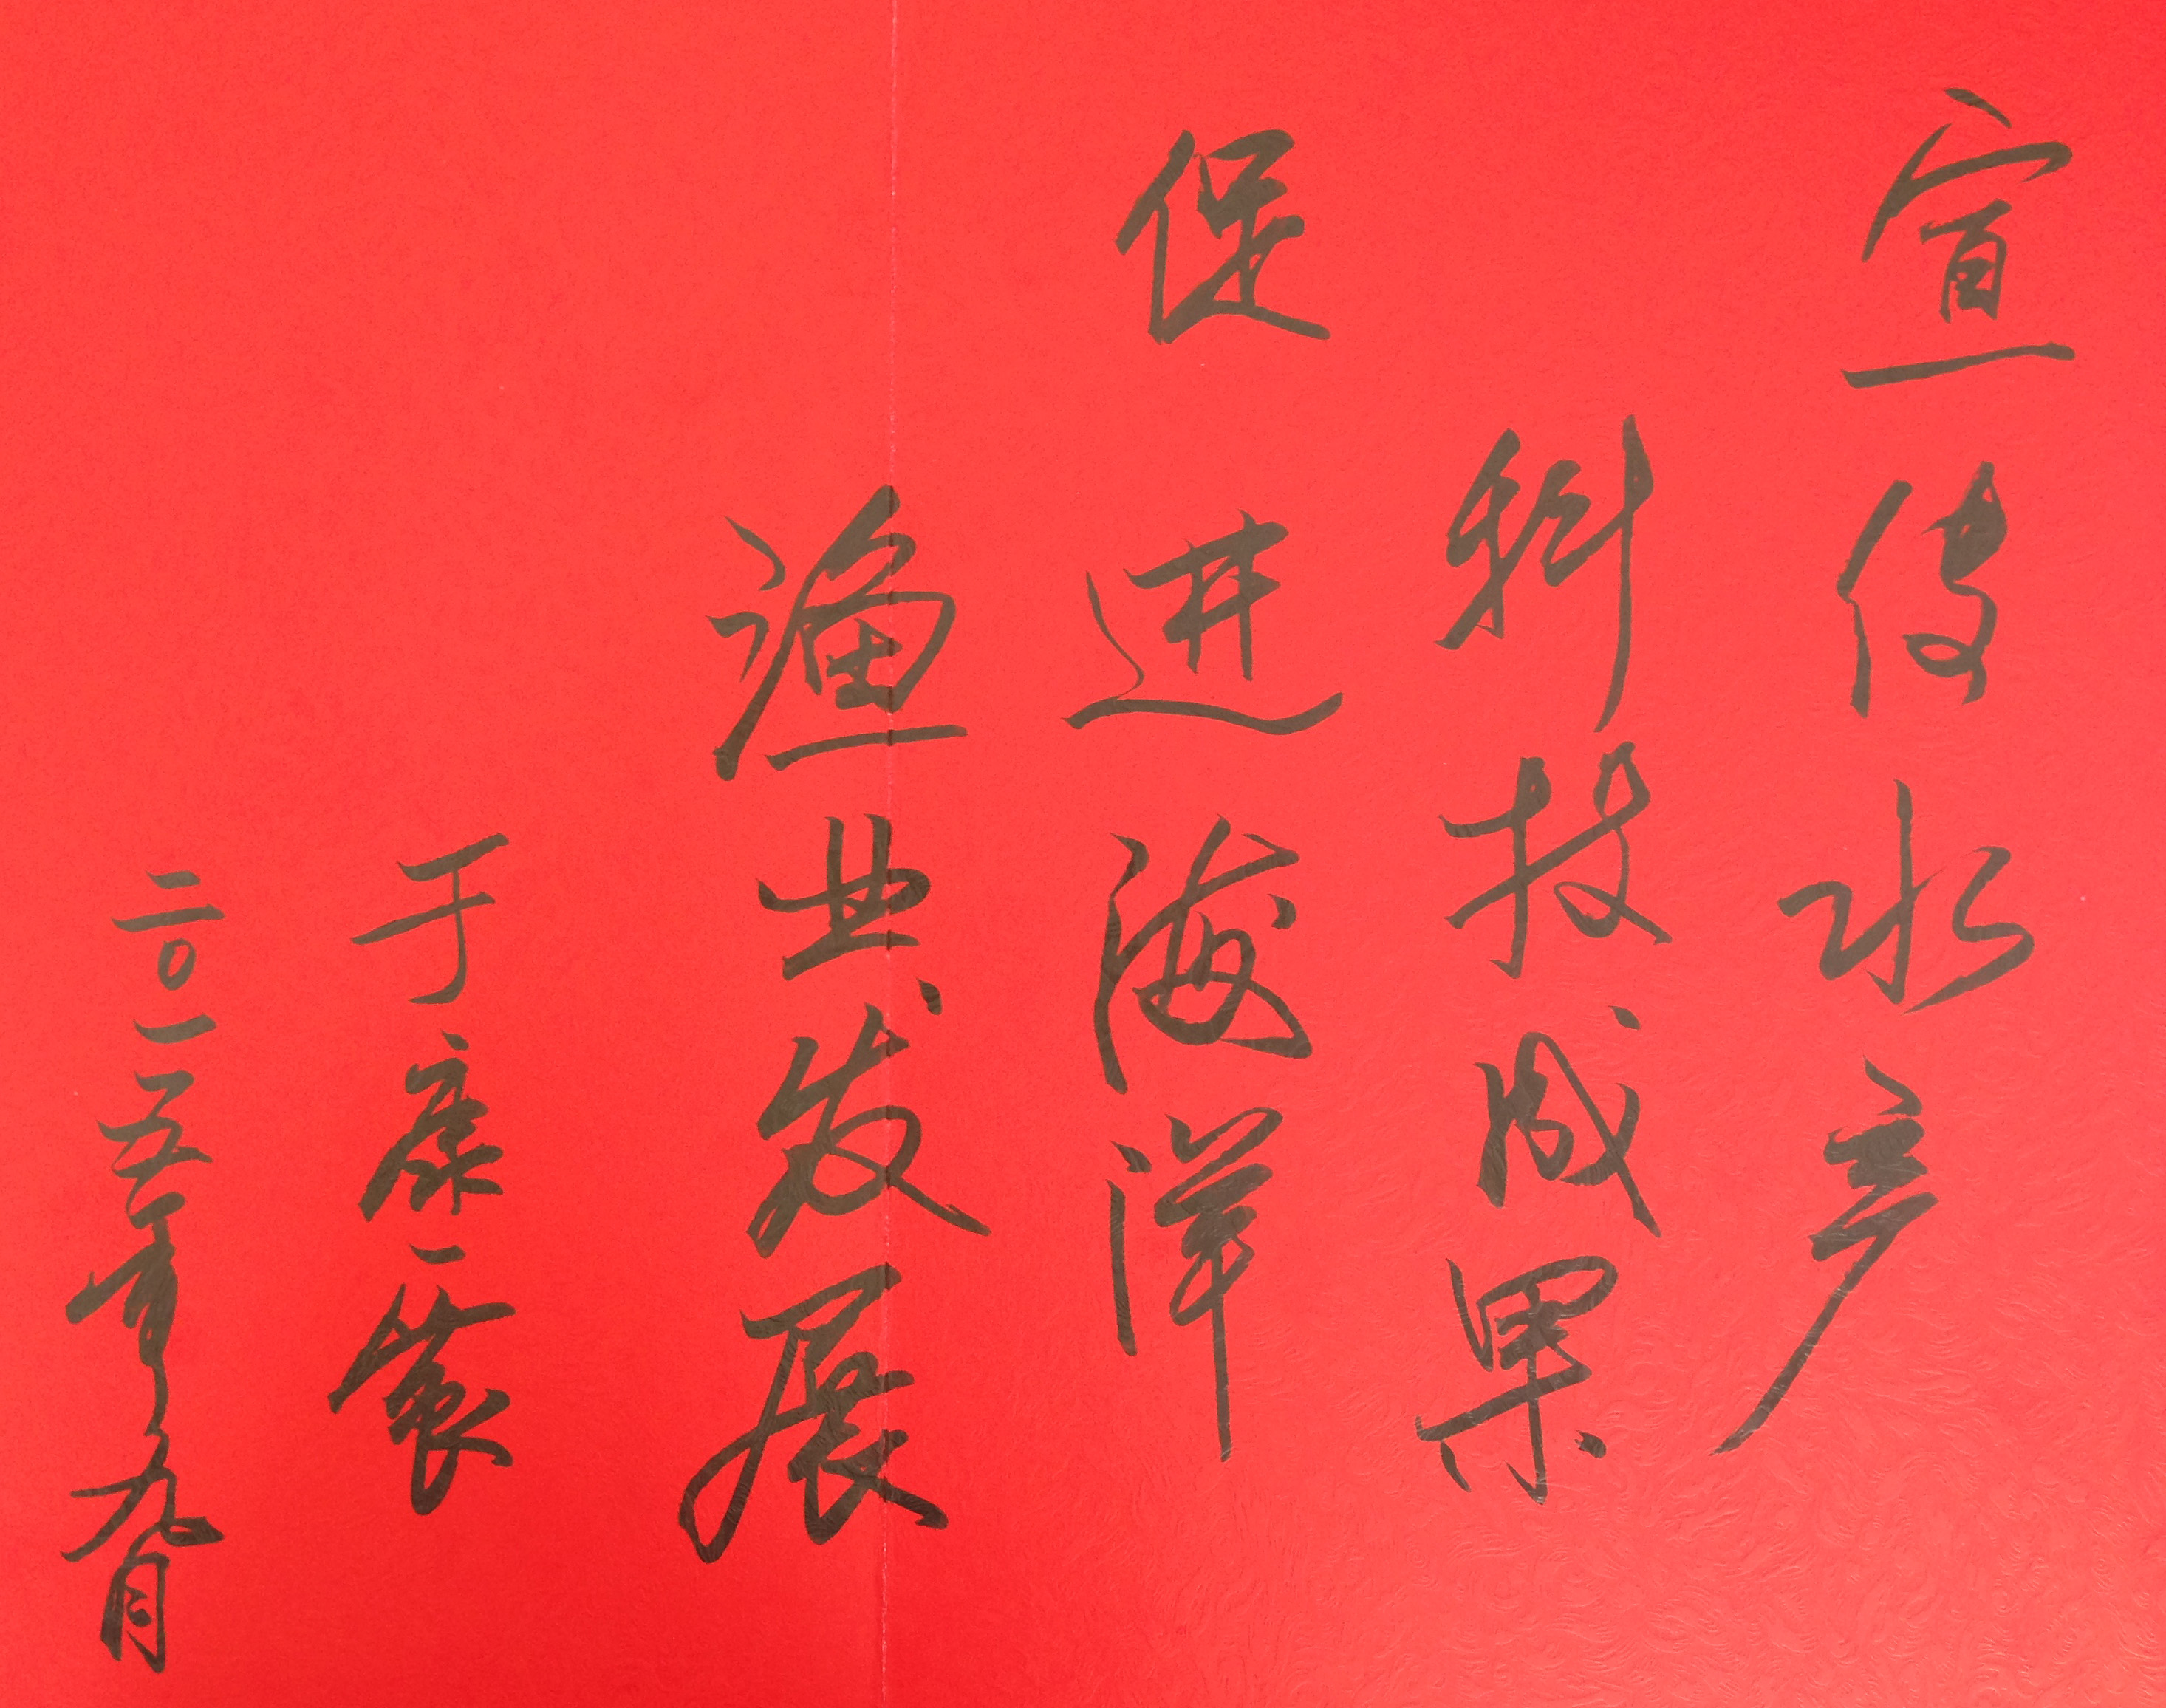 宣传水产
科技成果
促进海洋
渔业发展
于康震
二〇一五年九月